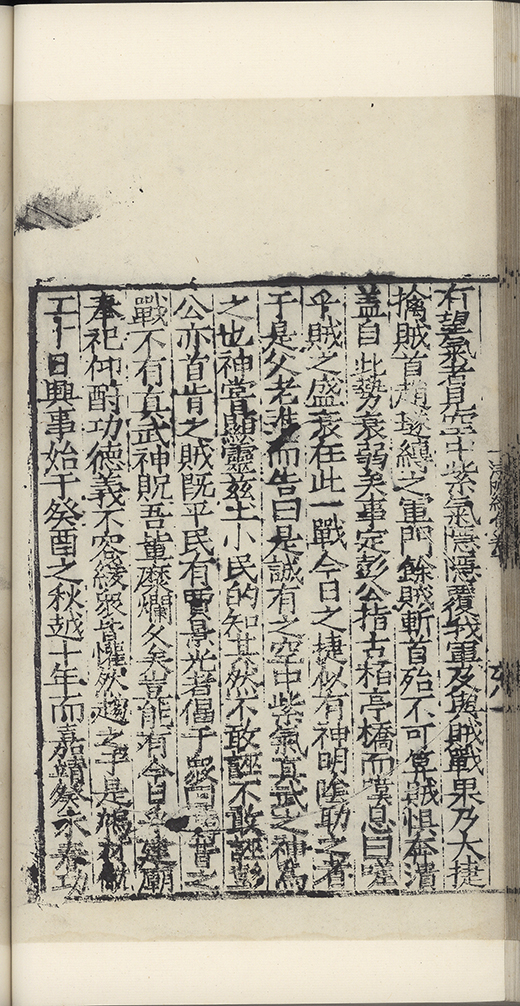 有望氣者見空中紫氣隱隱覆我軍及與賊戰果乃大捷
擒賊首趙璲縛之軍門餘賊斬首殆不可算賊惧奔潰
盖自此勢衰弱矣事定彭公指古栢亭橋而嘆息曰噫
乎賊之盛衰在此一戰今日之捷似有神明陰助之者
于是父老進而告曰是誠有之空中紫氣真武之神爲
之也神嘗顯靈茲土小民的知其然不敢誣不敢誣彭
公亦首肯之賊既平民有賈景光者偈于衆曰曹之
戰不有真武神貺吾輩糜爛久矣豈能有今日乎建廟
奉祀仰酧功德義不容緩衆皆懽然趨之于是鳩材
工十日興事始于癸酉之秋越十年而嘉靖癸未春功